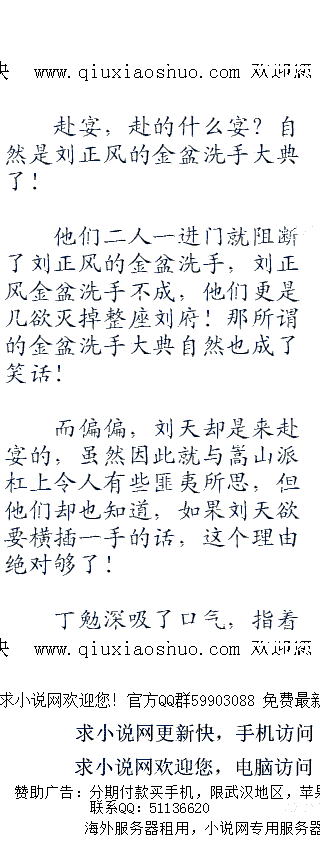 快 www.qiuxiaoshuo.com 欢迎您
赴宴，赴的什么宴？自
然是刘正风的金盆洗手大典
了！
他们二人一进门就阻断
了刘正风的金盆洗手，刘正
风金盆洗手不成，他们更是
几欲灭掉整座刘府！那所谓
的金盆洗手大典自然也成了
笑话！
而偏偏，刘天却是来赴
宴的，虽然因此就与嵩山派
杠上令人有些匪夷所思，但
他们却也知道，如果刘天欲
要横插一手的话，这个理由
绝对够了！
丁勉深吸了口气，指着
快 www.qiuxiaoshuo.com 欢迎您
求小说网欢迎您！官方QQ群59903088 免费最新
求小说网更新快，手机访问
求小说网欢迎您，电脑访问
赞助广告：分期付款买手机，限武汉地区，苹果
联系QQ：51136620
海外服务器租用，小说网专用服务器